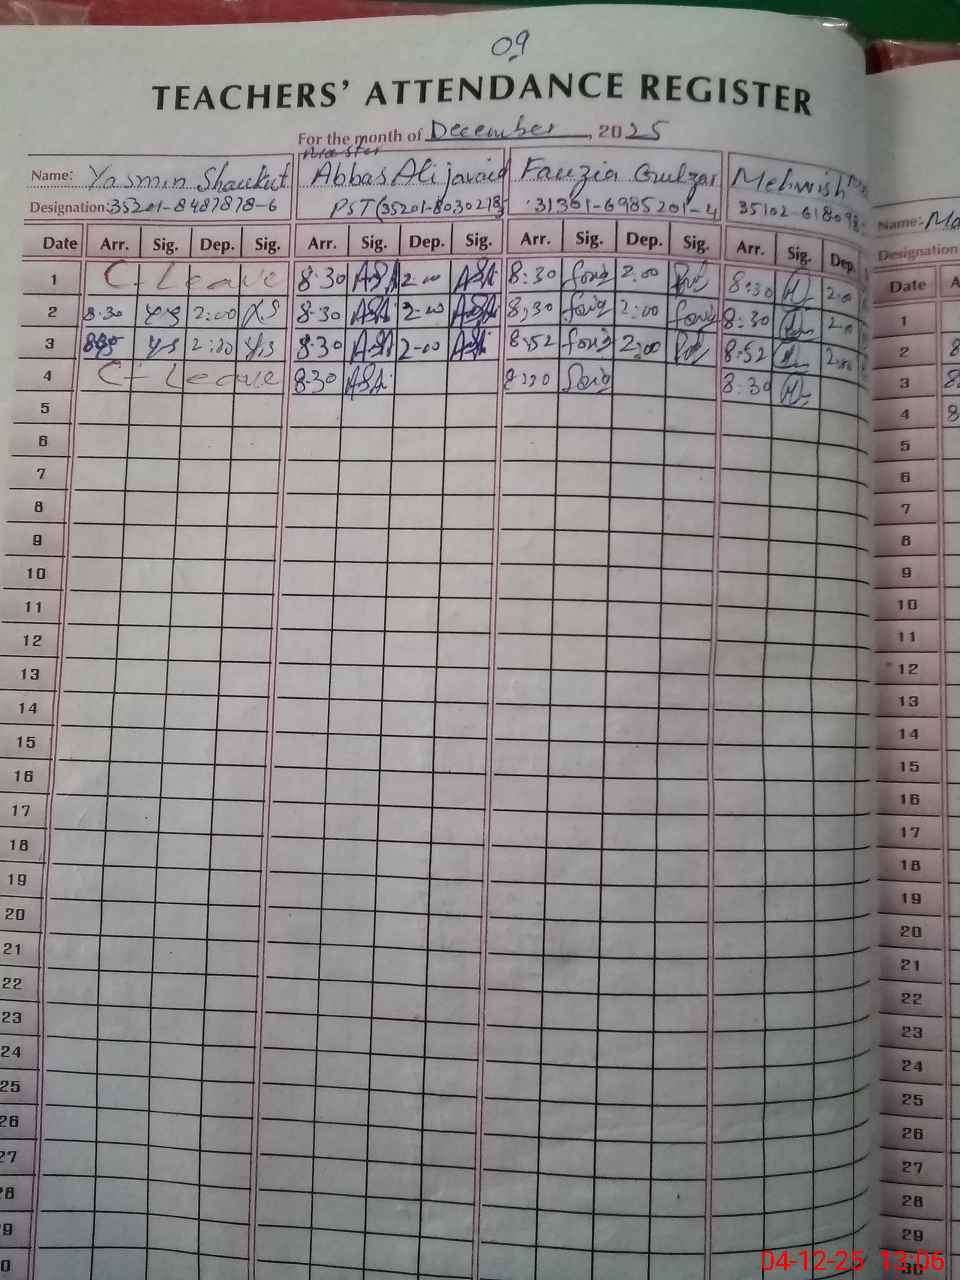 09
TEACHERS' ATTENDANCE REGISTER
For the month of December, 2025
Name: Yasmin Shaukut Abbas Ali javaid Fauzia Gulzar Mehwish
Designation: 35201-8487878-6 PST (35201-8030218 31301-6985201-4 35102-618098
Date Arr. Sig. Dep. Sig. Arr. Sig. Dep. Sig. Arr. Sig. Dep. Sig. Arr. Sig. Dep.
1 C-Leave 8-30 2-00 8:30 2:00 8:30 2:00
2 8:30 2:00 8-30 2-00 8:30 2:00 8:30 2:00
3 8-30 2-00 8:52 2:00 8:52 2:00
4 C-Leave 8-30 8:30
5
6
7
8
9
10
11
12
13
14
15
16
17
18
19
20
21
22
23
24
25
26
27
28
29
30
Name: Ma
Designation
Date A
1
2 8
3 8
4 8
5
6
7
8
9
10
11
12
13
14
15
16
17
18
19
20
21
22
23
24
25
26
27
28
29
30
04-12-25 13:06